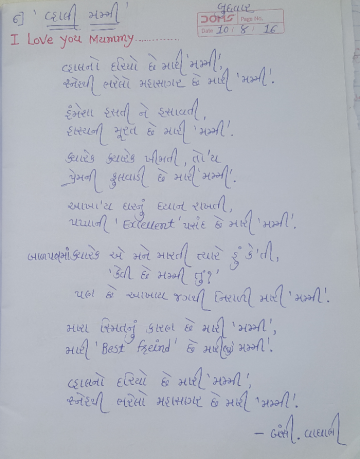 ૬) 'વ્હાલી મમ્મી'
બુધવાર
DOMS Page No.
Date 10 : 8 : 16
I Love you Mummy............
વ્હાલનો દરિયો છે મારી 'મમ્મી',
સ્નેહથી ભરેલો મહાસાગર છે મારી 'મમ્મી'.
હંમેશા હસતી ને હસાવતી,
હાસ્યની મૂરત છે મારી 'મમ્મી'.
ક્યારેક ક્યારેક ખીજતી, તો'ય
પ્રેમની ફુલવાડી છે મારી 'મમ્મી'.
આખા'ય ઘરનું ધ્યાન રાખતી,
પપ્પાની 'Excellent' પસંદ છે મારી 'મમ્મી'.
બાળપણમાં ક્યારેક એ મને મારતી ત્યારે હું કે'તી,
'કેવી છે મમ્મી તું?'
પણ છે આખાય જગથી નિરાળી મારી 'મમ્મી'.
મારા સ્મિતનું કારણ છે મારી 'મમ્મી',
મારી 'Best Freind' છે મારી 'મમ્મી'.
વ્હાલનો દરિયો છે મારી 'મમ્મી',
સ્નેહથી ભરેલો મહાસાગર છે મારી 'મમ્મી'.
- બંસી. વાઘાણી